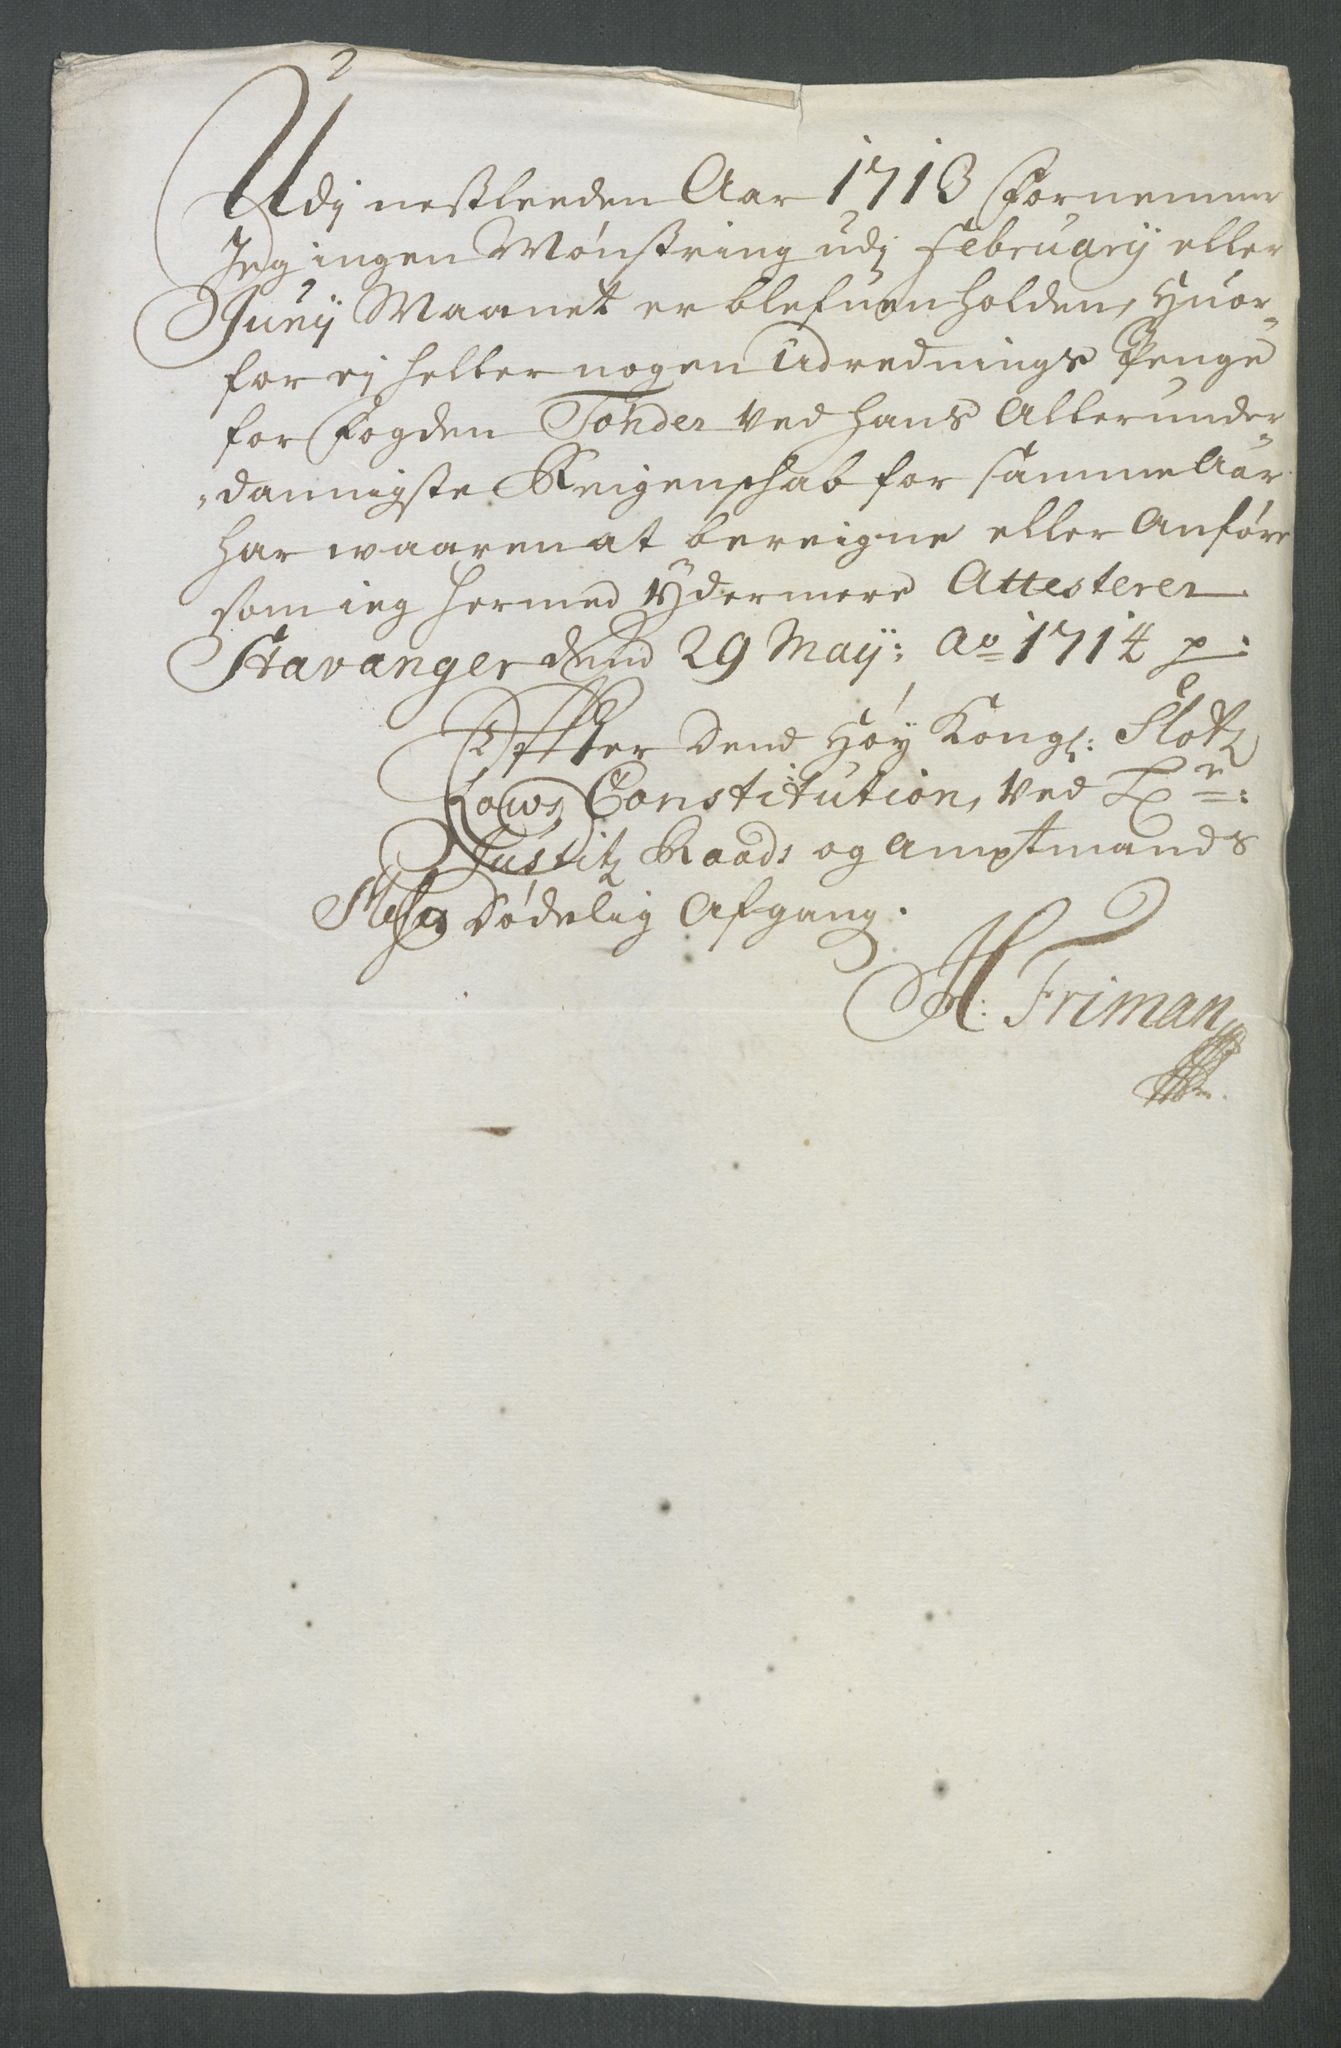 Udj nestleeden Aar 1713 Fornemmer
Jeg ingen Mønstring udj February eller
Junij Maanet er blefuen holden, Huor-
for ej heller nogen Udrednings Penge
for Fogden Tonder ved hans Allerunder
dannigste Reigenschab for samme Aar
har waaren at bereigne eller Anføre
som ieg hermed ydermere Attesterer
Stavanger dend 29 Maij: Ao 1714 p:
Effter dend Høy Kongl: Slotz
Lows Constitution, ved
Justitz Raads og Amptmands
dødelig Afgang.
H: Friman